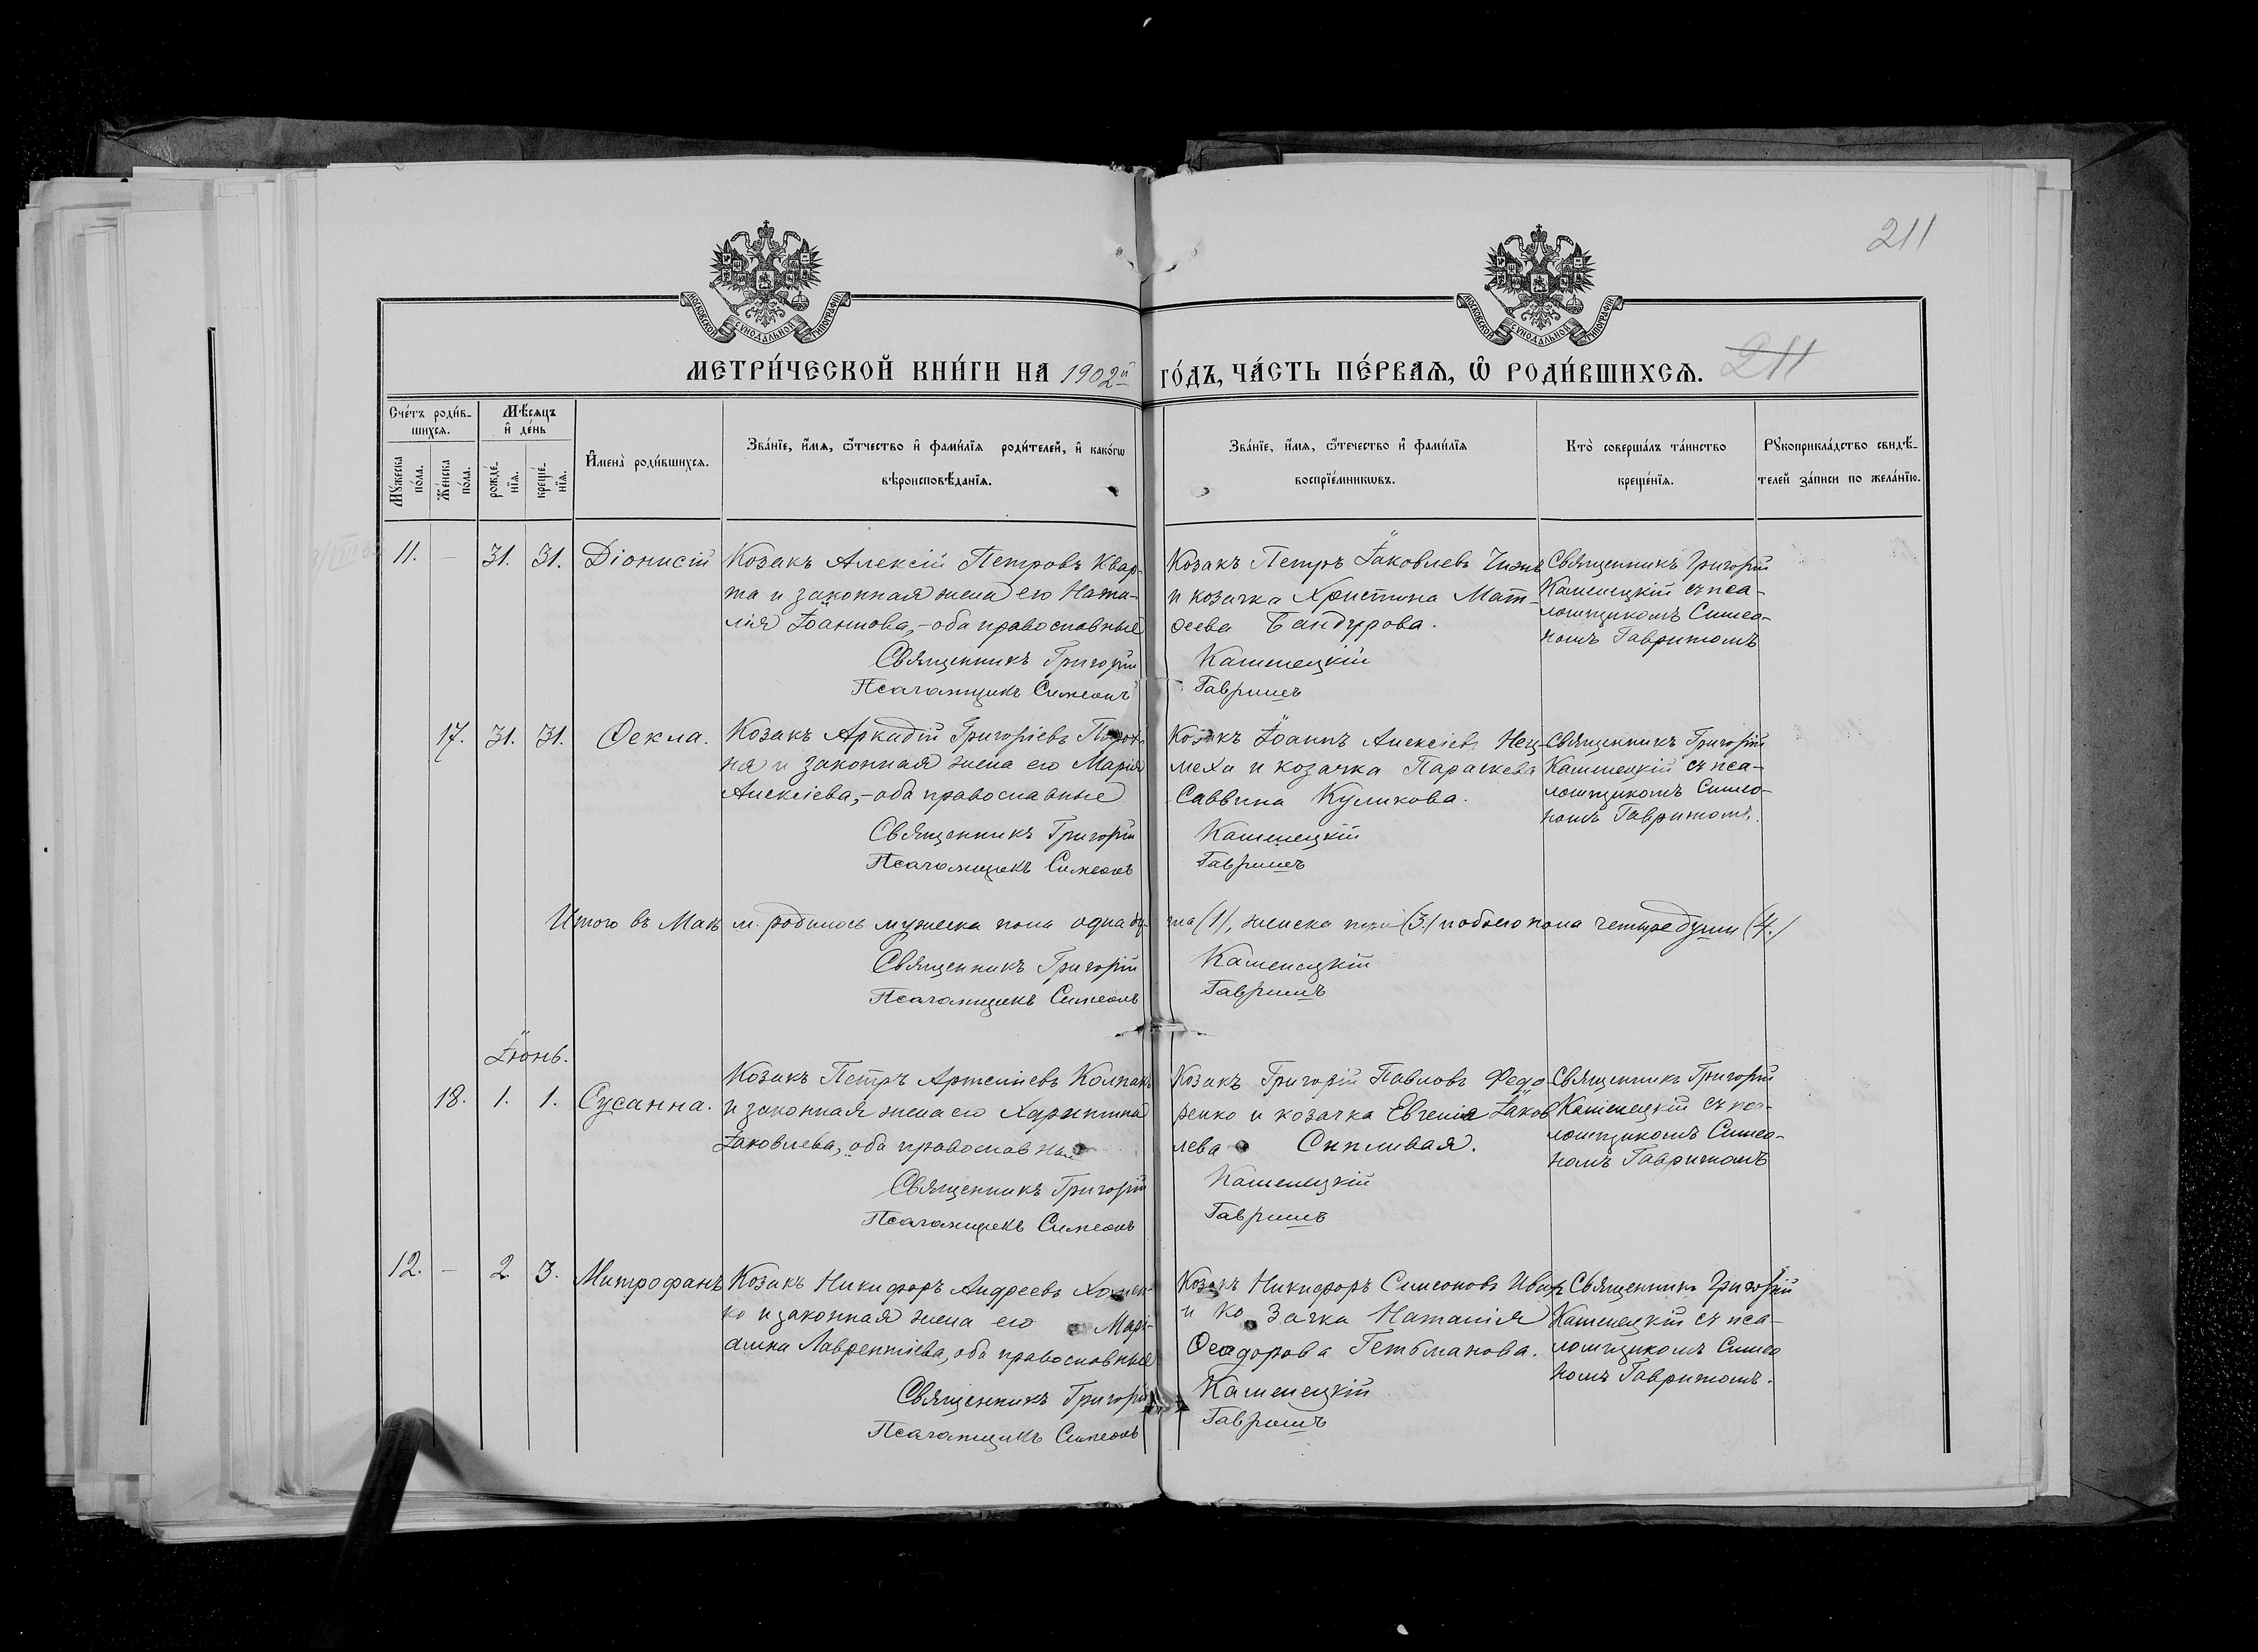 211
МОСКОВСКОЙ СѴНОДАЛЬНОЙ ТИПОГРАФІИ
МОСКОВСКОЙ СѴНОДАЛЬНОЙ ТИПОГРАФІИ
МЕТРИ́ЧЕСКОЙ КНИ́ГИ НА 1902й ГО́ДЪ, ЧА́СТЬ ПЕ́РВАѦ, Ѡ҆ РОДИ́ВШИХСѦ. 211
Сче́тъ роди́в-
шихсѧ.
Мꙋ́жеска по́ла.
Же́нска по́ла.
Мѣ́сѧцъ
и҆ де́нь
рожде́-
нїѧ.
креще́-
нїѧ.
И҆мена̀ роди́вшихсѧ.
Зва́нїе, и҆́мѧ, ѻ҆́тчество и҆ фами́лїѧ роди́телей, и҆ како́гѡ
вѣроисповѣ́данїѧ.
Зва́нїе, и҆́мѧ, ѻ҆те́чество и҆ фами́лїѧ
воспрїе́мникѡвъ.
Кто̀ соверша́лъ та́инство
креще́нїѧ.
Рꙋкоприкла́дство свидѣ́-
телей за́писи по жела́нїю.
11. — 31. 31. Діонисій
Козакъ Алексій Петровъ Квар-
та и законная жена его Ната-
лія Іоаннова, - оба православные
Священникъ Григорій Каменецкій
Псаломщикъ Симеонъ Гавришъ
Козакъ Петръ Іаковлевъ
и козачка Христина Мат-
ѳеева Бандурова.
Священникъ Григорій
Каменецкій съ пса-
ломщикомъ Симео-
номъ Гавришомъ
17. 31. 31. Ѳекла.
Козакъ Аркадій Григоріевъ
ня и законная жена его Марія
Алексіева, - оба православные
Священникъ Григорій Каменецкій
Псаломщикъ Симеонъ Гавришъ
Козакъ Іоаннъ Алексіевъ
меха и козачка Параскева
Саввина Куликова.
Священникъ Григорій
Каменецкій съ пса-
ломщикомъ Симео-
номъ Гавришомъ.
Итого въ Маѣ м. родилось мужеска пола одна ду- ша (1), женска три (3.) и обоего пола четыре души (4.)
Священникъ Григорій Каменецкій
Псаломщикъ Симеонъ Гавришъ
Іюнь.
18. 1. 1. Сусанна.
Козакъ Петръ Артеміевъ Колпакъ
и законная жена его Харитина
Іаковлева, оба православные
Священникъ Григорій Каменецкій
Псаломщикъ Симеонъ Гавришъ
Козакъ Григорій Павловъ Федо-
ренко и козачка Евгенія Іаков
лева Сипливая.
Священникъ Григорій
Каменецкій съ пса-
ломщикомъ Симео-
номъ Гавришомъ
12. — 2. 3. Митрофанъ
Козакъ Никифоръ Андреевъ Хомен-
ко и законная жена его Марі-
амна Лаврентіева, оба православные
Священникъ Григорій Каменецкій
Псаломщикъ Симеонъ Гавришъ
Козакъ Никифоръ Симеоновъ
и козачка Наталія
Ѳеодорова Гетьманова.
Священникъ Григорій
Каменецкій съ пса-
ломщикомъ Симео
номъ Гавришомъ.